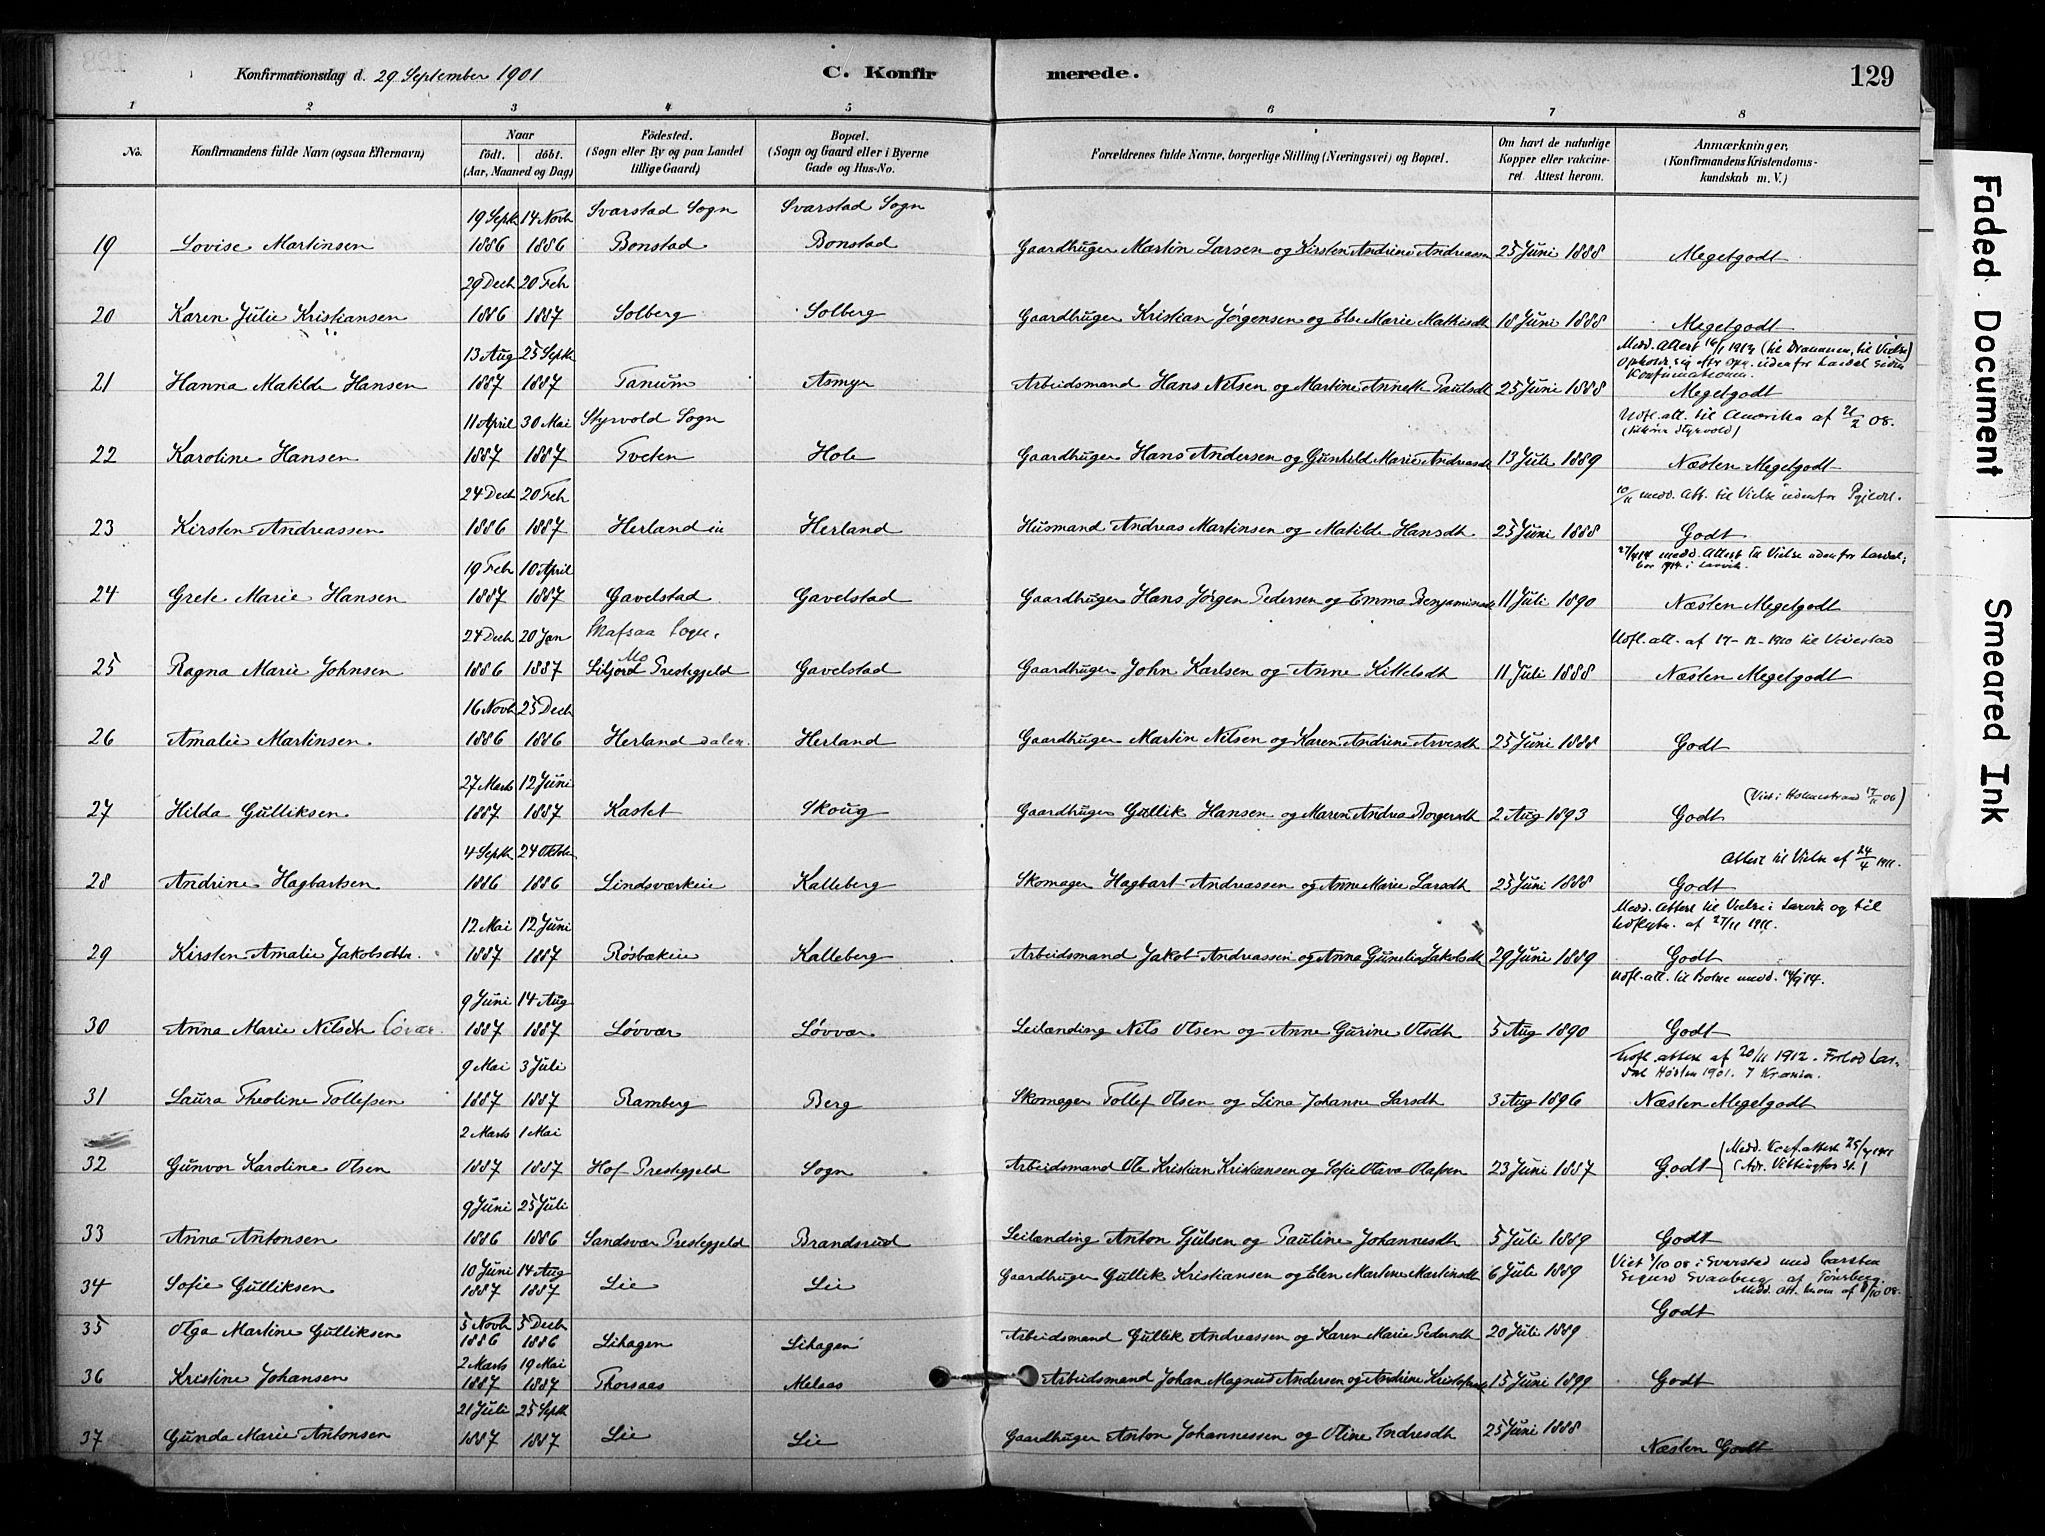 Konfirmationsdag d. 29 September 1901
C. Konfirmerede.
129
1 2 3 4 5 6 7 8
No.
Konfirmandens fulde Navn (ogsaa Efternavn)
Naar
födt. döbt.
(Aar, Maaned og Dag)
Födested.
(Sogn eller By og paa Landet
tillige Gaard)
Bopæl.
(Sogn og Gaard eller i Byerne
Gade og Hus-No.
Forældrenes fulde Navne, borgerlige Stilling (Næringsvei) og Bopæl.
Om havt de naturlige
Kopper eller vakcineret. Attest herom.
Anmærkninger,
(Konfirmandens Kristendomskundskab m. V.)
19 Septb 14 Novb Svarstad Sogn Svarstad Sogn
19 Lovise Martinsen 1886 1886 Bonstad Bonstad Gaardbruger Martin Larsen og Kirsten Andrine Andreassen 25 Juni 1888 Megetgodt
29 Decb 20 Feb
20 Karen Julie Kristiansen 1886 1887 Solberg Solberg Gaardbruger Kristian Jørgensen og Else Marie Mathisdt 18 Juni 1888 Megetgodt
Medd. Attest 16/1 1913 (til Drammen, til Vielse)
Opholdt sig efter udenfor Lardal siden
Konfirmationen.
13 Aug 25 Septb
21 Hanna Matilde Hansen 1887 1887 Tanum Asmyr Arbeidsmand Hans Nilsen og Martine Annette Paulsdt 25 Juni 1888 Megetgodt
Udfl. att. til Amerika af 21/2 08.
11 April 30 Mai Styrvold Sogn
22 Karoline Hansen 1887 1887 Tveten Hole Gaardbruger Hans Andersen og Gunhild Marie Andreasdt 13 Juli 1889 Næsten Megetgodt
10/11 medd. Att. til Vielse udenfor
24 Decb 20 Feb
23 Kirsten Andreassen 1886 1887 Herland ie Herland Husmand Andreas Martinsen og Matilde Hansdt 25 Juni 1888 Godt
medd. Attest til Vielse udenfor Lardal,
bor 1914 i Larvik.
19 Feb 10 April
24 Grete Marie Hansen 1887 1887 Gavelstad Gavelstad Gaardbruger Hans Jørgen Pedersen og Emma Benjaminsdt 11 Juli 1890 Næsten Megetgodt
24 Decb 20 Jan Skafsaa Sogn,
Udfl. att. af 17-12-1910 til Vivestad
Mo
25 Ragna Marie Johnsen 1886 1887 Siljord Prestegjeld Gavelstad Gaardbruger John Karlsen og Anne Kittelsdt 11 Juli 1888 Næsten Megetgodt
16 Novb 25 Decb
26 Amalie Martinsen 1886 1886 Herland dalen. Herland Gaardbruger Martin Nilsen og Karen Andrine Arvesdt 25 Juni 1888 Godt
27 Marts 12 Juni
(Viet i Holmestrand 17/11 06)
27 Hilda Gulliksen 1887 1887 Kastet Skoug Gaardbruger Gullik Hansen og Maren Andrea Borgersdt 2 Aug 1893 Godt
4 Septb 24 Oktober
Attest til Vielse af 24/4 1911.
28 Andrine Hagbartsen 1886 1886 Lindsværkeie Kalleberg Skomager Hagbart Andreassen og Anne Marie Larsdt 25 Juni 1888 Godt
Medd. Attest til Vielse i Larvik og til
Udflytn. af 27/11 1911.
12 Mai 12 Juni
29 Kirsten Amalie Jakobsdtr. 1887 1887 Røsbækeie Kalleberg Arbeidsmand Jakob Andreassen og Anna Gunelia Jakobsdt 29 Juni 1889 Godt
Udfl. att. til Botne medd. 14/9 14.
9 Juni 14 Aug
30 Anna Marie Nilsdt Løvær. 1887 1887 Løvvær Løvvær Leilænding Nils Olsen og Anne Gurine Olsdt 5 Aug 1890 Godt
Udfl. attest af 20/11 1912. Forlod Lardal Høsten 1901. I Krania.
9 Mai 3 Juli
31 Laura Theoline Tollefsen 1887 1887 Ramberg Berg Skomager Tollef Olsen og Lina Johanne Larsdt 3 Aug 1896 Næsten Megetgodt
2 Marts 1 Mai
32 Gunvor Karoline Olsen 1887 1887 Hof Prestegjeld Sogn Arbeidsmand Ole Kristian Kristiansen og Sofie Olava Olafsen 23 Juni 1887 Godt
(Adr. Vittingfos St.)
9 Juni 25 Juli
33 Anna Antonsen 1886 1886 Sandsvær Prestegjeld Brandsrud Leilænding Anton Gjulsen og Pauline Johannesdt 5 Juli 1889 Godt
10 Juni 14 Aug
34 Sofie Gulliksen 1887 1887 Lie Lie Gaardbruger Gullik Kristiansen og Elen Martine Martinsdt 6 Juli 1889
Viet /10 08 i Svarstad med Carsten
Sigurd Svanberg af Tønsberg.
Medd. att. herom af 8/10 08.
Godt
5 Novb 5 Decb
35 Olga Martine Gulliksen 1886 1886 Lihagen Lihagen Arbeidsmand Gullik Andreassen og Karen Marie Pedersdt 20 Juli 1889.
2 Marts 19 Mai
36 Kristine Johansen 1887 1887 Thorsaas Melaas Arbeidsmand Johan Magnus Andersen og Andrine Kristofersdt 15 Juni 1899 Godt
21 Juli 25 Septb
37 Gunda Marie Antonsen 1887 1887 Lie Lie Gaardbruger Anton Johannessen og Oline Indresdt 25 Juni 1888 Næsten Godt
Faded Document
Smeared Ink